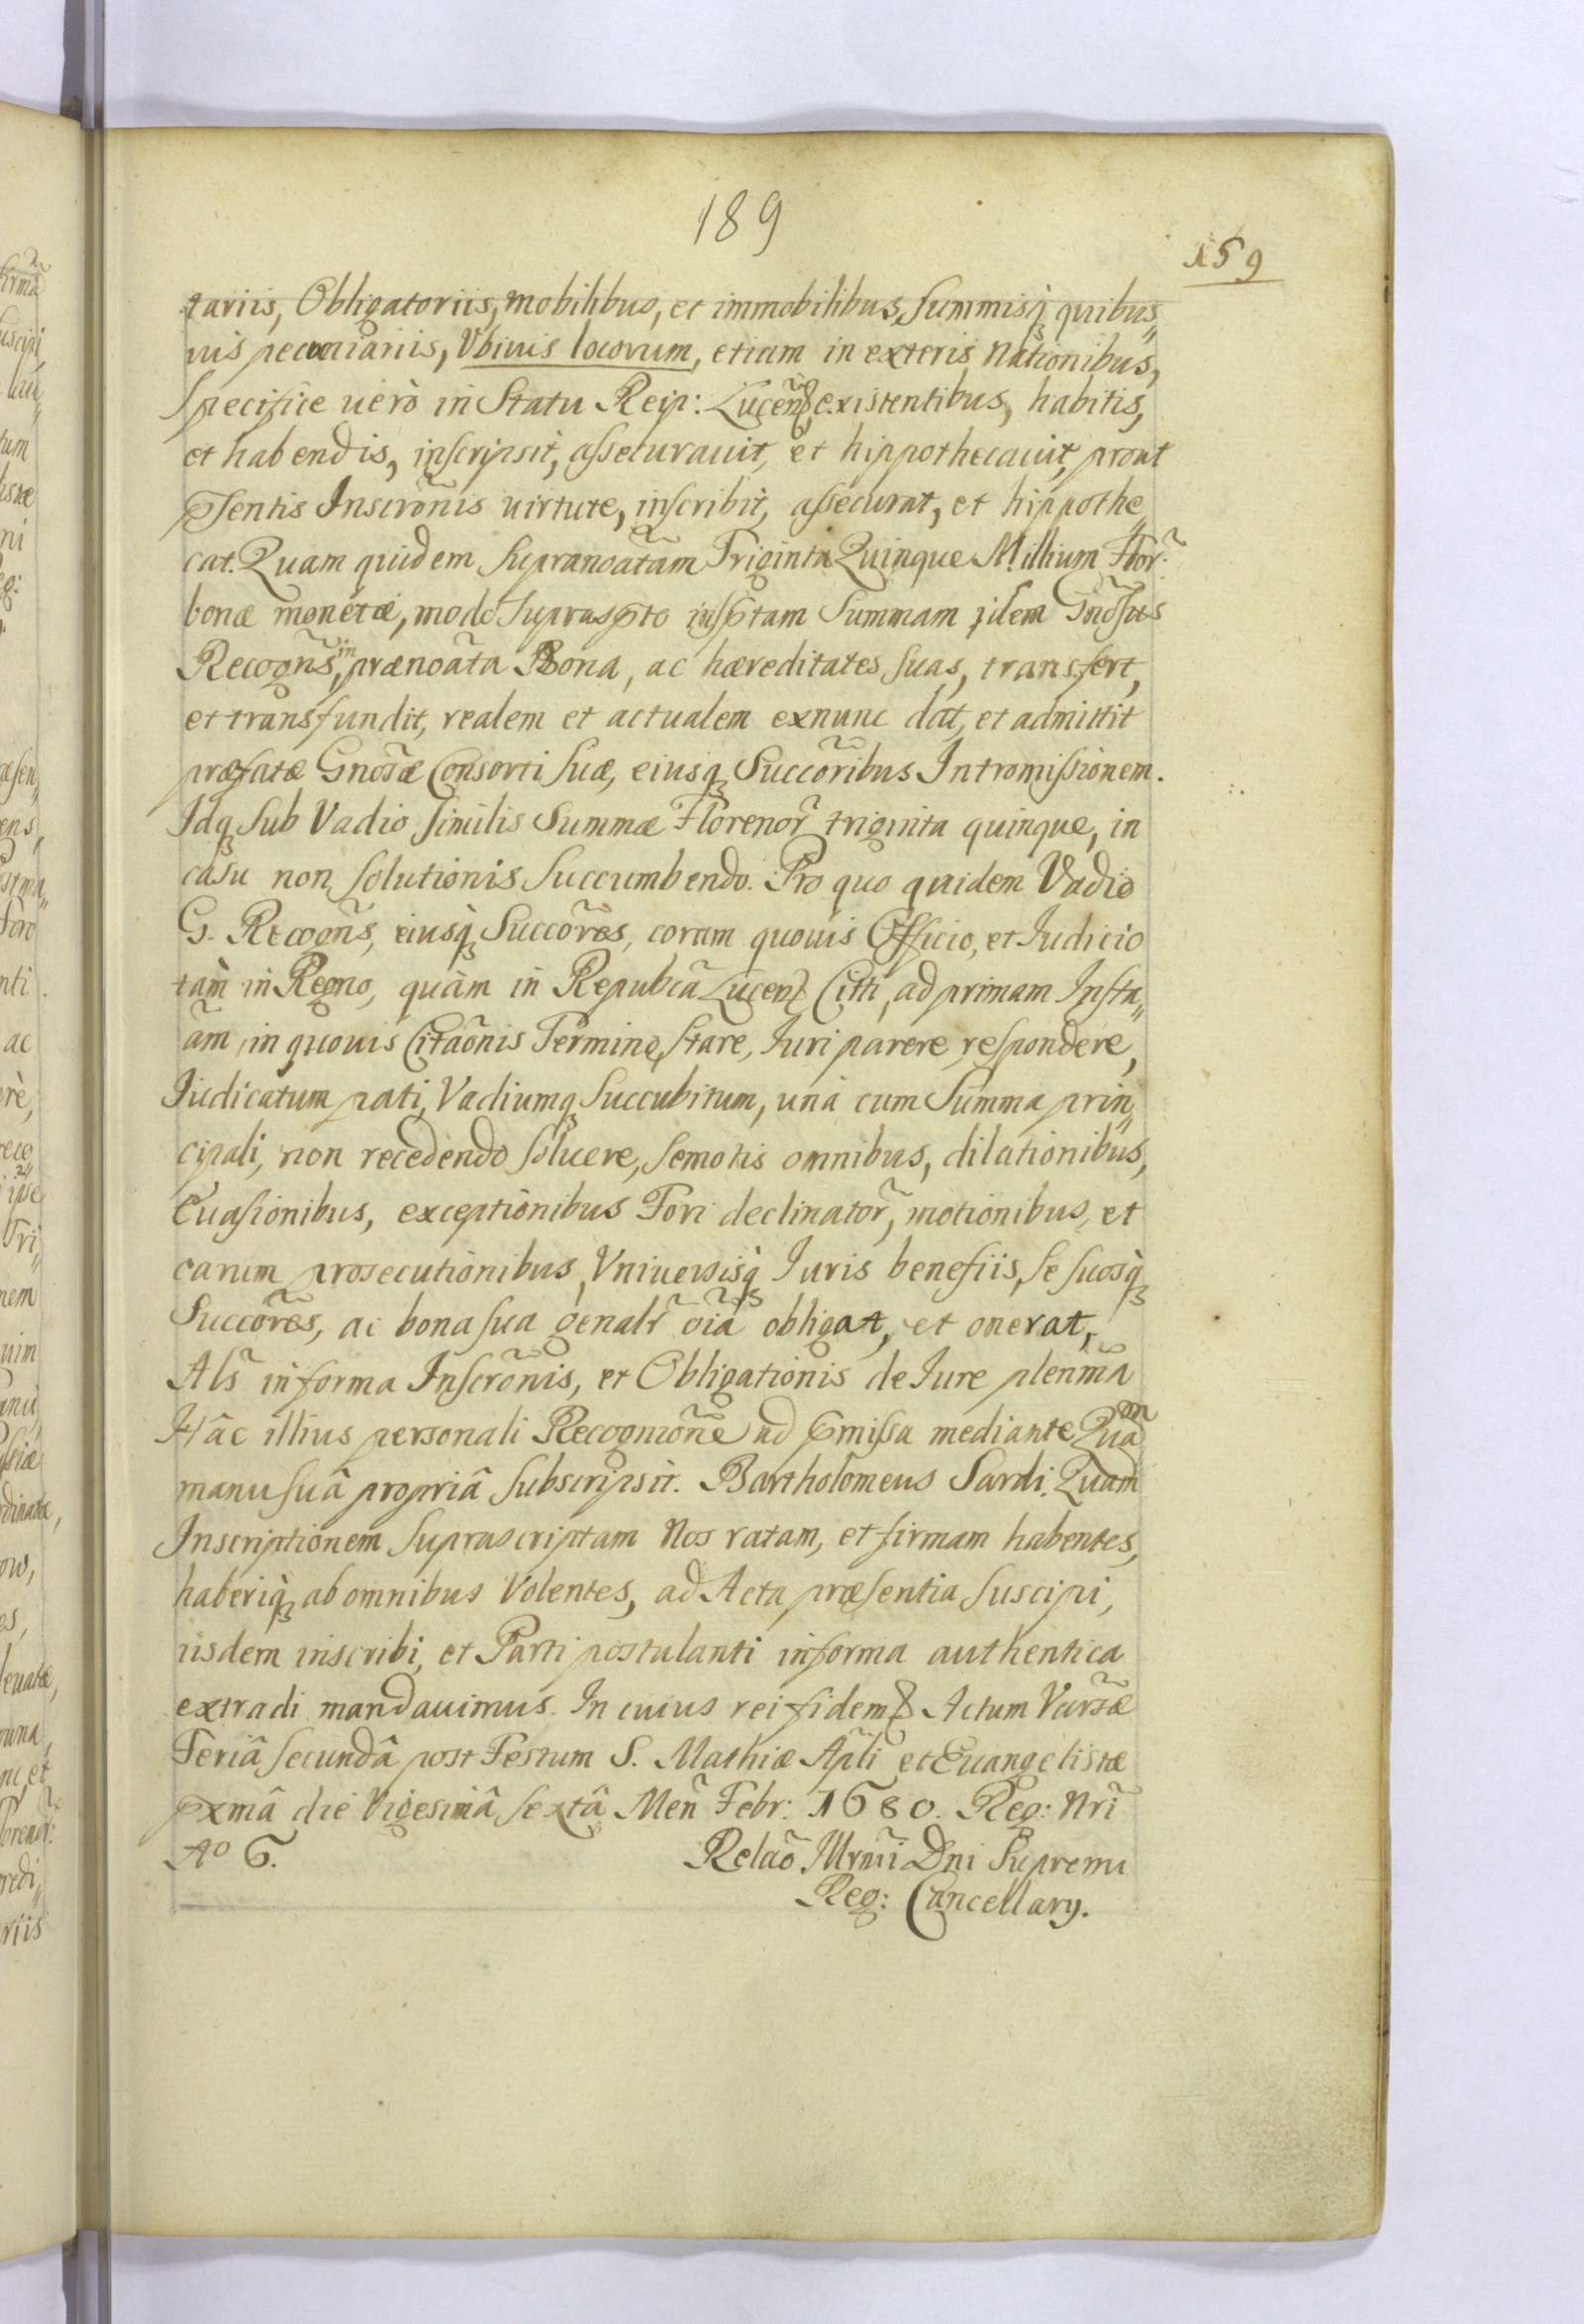 189
159
tariis, Obligatoriis, mobilibus, et immobilibus, Summisq́ quibus„
uis pecuniariis, Vbiuis locorum, etiam in exteris Nationibus,
Specifice uerò in Statu Reip: Lucen̄, existentibus, habitis,
et habendis, inscripsit, assecurauit, et hippothecauit, prout
p̄sentis Inscrōnis uirtute, inscribit, assecurat, et hippothe„
cat. Quam quidem supranoātam Triginta Quinque Millium Flor:
bonæ monetæ, modo suprasp̄to insp̄tam Summam idem Gnōsus
Recogn̄s, in prænoāta Bona, ac hæreditates suas, transfert,
et transfundit, realem et actualem exnunc dat, et admittit
præfatæ Gnosæ̃ Consorti suæ, eiusq́ Succōribus Intromissionem.
Idq́ sub Vadio similis Summæ Florenor̃ triginta quinque, in
casu non solutionis succumbendo. Pro quo quidem Vadio
G. Recogn̄s, eiusq́ Succōres, coram quouis Officio, et Iudicio
tàm in Regno, quàm in Repubcā Lucen̄ Citti, ad primam Insta„
ām, in quouis Citāonis Termino, stare, Iuri parere, respondere,
Iudicatum pati, Vadiumq́ succubitum, unà cum Summa prin„
cipali, non recedendo soluere, semotis omnibus, dilationibus,
Euasionibus, exceptionibus Fori declinator̃, motionibus, et
earum prosecutionibus, Vniuersisq́ Iuris benefiis, se suosq́
Succōres, ac bona sua genalr̃ oiā obligat, et onerat,
Als̃ in forma Inscrōnis, et Obligationis de Iure plenm̄a
Hâc illius personali Recognōne ad p̄missa mediante Quām
manu suâ propriâ subscripsit. Bartholomeus Sardi. Quam
Inscriptionem suprascriptam Nos ratam, et firmam habentes,
haberiq́ ab omnibus Volentes, ad Acta præsentia suscipi,
iisdem inscribi, et Parti postulanti in forma authentica
extradi mandauimus. In cuius rei fidem Actum Varsæ̃
Feriâ secundâ post Festum S. Mathiæ Apl̃i et Euangelistæ
p̄xmâ die Vigesimâ sextâ Men̄ Febr: 1680. Reg: Nr̃i
Aº 6.
Relaõ Illrm̄i Dni Supremi
Reg: Cancellarÿ.